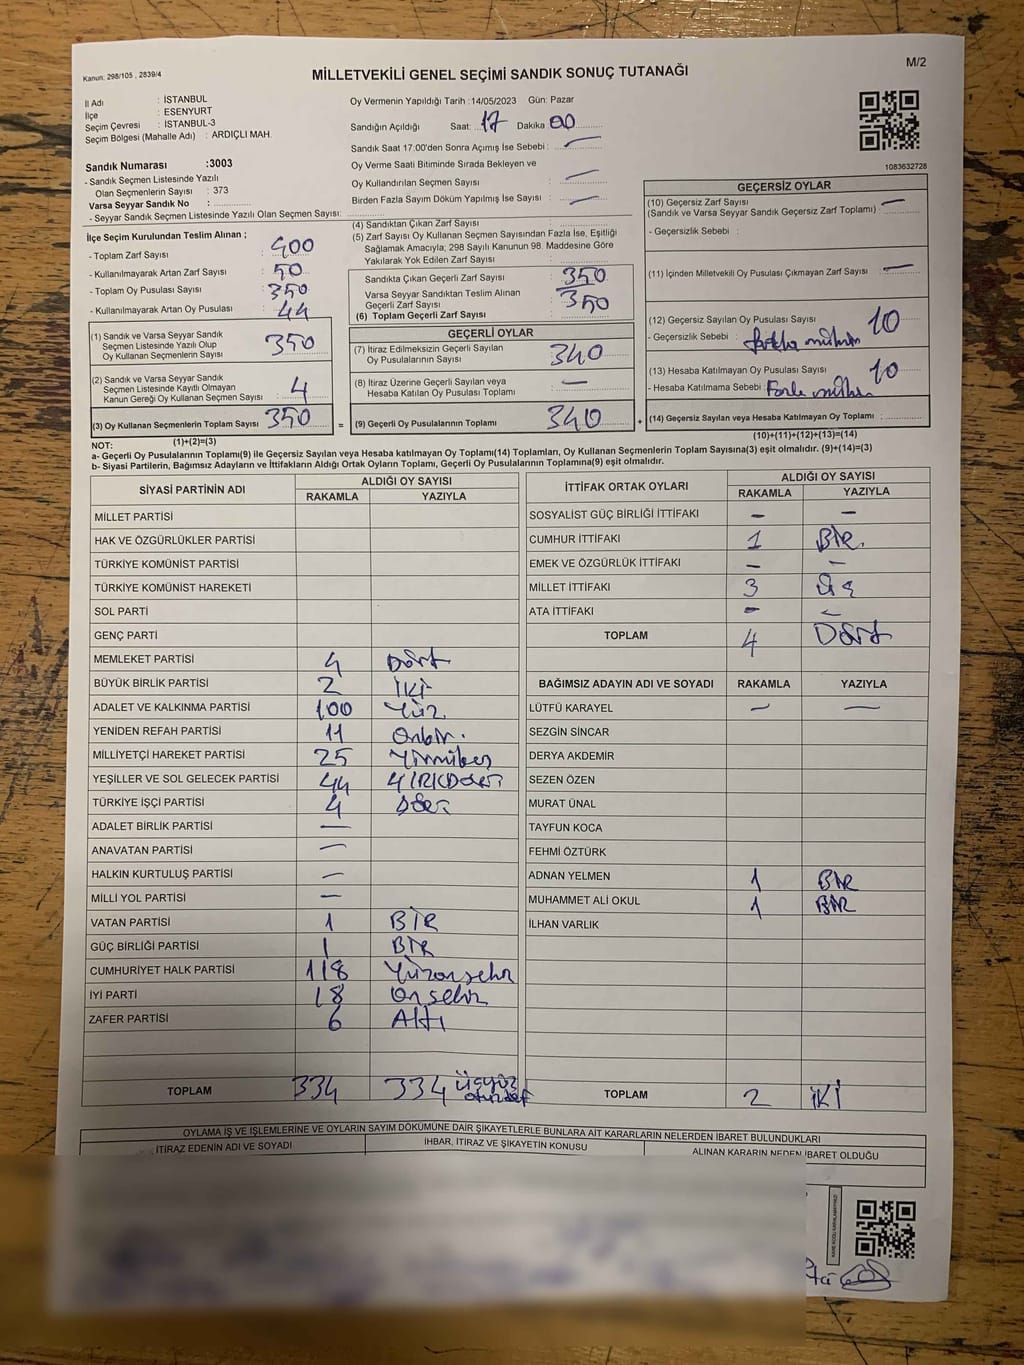 Kanun: 298/105 , 2839/4
MİLLETVEKİLİ GENEL SEÇİMİ SANDIK SONUÇ TUTANAĞI
M/2
İl Adı : İSTANBUL
İlçe : ESENYURT
Seçim Çevresi : İSTANBUL-3
Seçim Bölgesi (Mahalle Adı) : ARDIÇLI MAH.
Sandık Numarası :3003
- Sandık Seçmen Listesinde Yazılı
Olan Seçmenlerin Sayısı : 373
Varsa Seyyar Sandık No :
- Seyyar Sandık Seçmen Listesinde Yazılı Olan Seçmen Sayısı:
Oy Vermenin Yapıldığı Tarih :14/05/2023 Gün: Pazar
Sandığın Açıldığı Saat: 17 Dakika 00
Sandık Saat 17:00'den Sonra Açımış İse Sebebi : —
Oy Verme Saati Bitiminde Sırada Bekleyen ve
Oy Kullandırılan Seçmen Sayısı —
Birden Fazla Sayım Döküm Yapılmış İse Sayısı : —
1083632728
İlçe Seçim Kurulundan Teslim Alınan ;
- Toplam Zarf Sayısı : 400
- Kullanılmayarak Artan Zarf Sayısı : 50
- Toplam Oy Pusulası Sayısı : 350
- Kullanılmayarak Artan Oy Pusulası : 44
(1) Sandık ve Varsa Seyyar Sandık
Seçmen Listesinde Yazılı Olup
Oy Kullanan Seçmenlerin Sayısı : 350
(2) Sandık ve Varsa Seyyar Sandık
Seçmen Listesinde Kayıtlı Olmayan
Kanun Gereği Oy Kullanan Seçmen Sayısı : 4
(3) Oy Kullanan Seçmenlerin Toplam Sayısı : 350
(1)+(2)=(3)
(4) Sandıktan Çıkan Zarf Sayısı :
(5) Zarf Sayısı Oy Kullanan Seçmen Sayısından Fazla İse, Eşitliği
Sağlamak Amacıyla; 298 Sayılı Kanunun 98. Maddesine Göre
Yakılarak Yok Edilen Zarf Sayısı :
Sandıkta Çıkan Geçerli Zarf Sayısı : 350
Varsa Seyyar Sandıktan Teslim Alınan
Geçerli Zarf Sayısı : 350
(6) Toplam Geçerli Zarf Sayısı :
GEÇERLİ OYLAR
(7) İtiraz Edilmeksizin Geçerli Sayılan
Oy Pusulalarının Sayısı : 340
(8) İtiraz Üzerine Geçerli Sayılan veya
Hesaba Katılan Oy Pusulası Toplamı : —
= (9) Geçerli Oy Pusulalarının Toplamı : 340 +
GEÇERSİZ OYLAR
(10) Geçersiz Zarf Sayısı
(Sandık ve Varsa Seyyar Sandık Geçersiz Zarf Toplamı) : —
- Geçersizlik Sebebi :
(11) İçinden Milletvekili Oy Pusulası Çıkmayan Zarf Sayısı : —
(12) Geçersiz Sayılan Oy Pusulası Sayısı : 10
- Geçersizlik Sebebi :
(13) Hesaba Katılmayan Oy Pusulası Sayısı : 10
- Hesaba Katılmama Sebebi :
(14) Geçersiz Sayılan veya Hesaba Katılmayan Oy Toplamı :
(10)+(11)+(12)+(13)=(14)
NOT:
a- Geçerli Oy Pusulalarının Toplamı(9) ile Geçersiz Sayılan veya Hesaba katılmayan Oy Toplamı(14) Toplamları, Oy Kullanan Seçmenlerin Toplam Sayısına(3) eşit olmalıdır. (9)+(14)=(3)
b- Siyasi Partilerin, Bağımsız Adayların ve İttifakların Aldığı Ortak Oyların Toplamı, Geçerli Oy Pusulalarının Toplamına(9) eşit olmalıdır.
SİYASİ PARTİNİN ADI ALDIĞI OY SAYISI
RAKAMLA YAZIYLA
MİLLET PARTİSİ
HAK VE ÖZGÜRLÜKLER PARTİSİ
TÜRKİYE KOMÜNİST PARTİSİ
TÜRKİYE KOMÜNİST HAREKETİ
SOL PARTİ
GENÇ PARTİ
MEMLEKET PARTİSİ 4 Dört
BÜYÜK BİRLİK PARTİSİ 2 İki
ADALET VE KALKINMA PARTİSİ 100 Yüz.
YENİDEN REFAH PARTİSİ 11 Onbir.
MİLLİYETÇİ HAREKET PARTİSİ 25 Yirmibeş
YEŞİLLER VE SOL GELECEK PARTİSİ 44
TÜRKİYE İŞÇİ PARTİSİ 4
ADALET BİRLİK PARTİSİ —
ANAVATAN PARTİSİ —
HALKIN KURTULUŞ PARTİSİ —
MİLLİ YOL PARTİSİ —
VATAN PARTİSİ 1 BİR
GÜÇ BİRLİĞİ PARTİSİ 1 BİR
CUMHURİYET HALK PARTİSİ 118 Yüzonsekiz
İYİ PARTİ 18 Onsekiz
ZAFER PARTİSİ 6 Altı
TOPLAM 334 334 üçyüz
İTTİFAK ORTAK OYLARI ALDIĞI OY SAYISI
RAKAMLA YAZIYLA
SOSYALİST GÜÇ BİRLİĞİ İTTİFAKI — —
CUMHUR İTTİFAKI 1 Bir.
EMEK VE ÖZGÜRLÜK İTTİFAKI — —
MİLLET İTTİFAKI 3 Üç
ATA İTTİFAKI — —
TOPLAM 4 Dört
BAĞIMSIZ ADAYIN ADI VE SOYADI RAKAMLA YAZIYLA
LÜTFÜ KARAYEL — —
SEZGİN SİNCAR
DERYA AKDEMİR
SEZEN ÖZEN
MURAT ÜNAL
TAYFUN KOCA
FEHMİ ÖZTÜRK
ADNAN YELMEN 1 BİR
MUHAMMET ALİ OKUL 1 BİR
İLHAN VARLIK
TOPLAM 2 İKİ
OYLAMA İŞ VE İŞLEMLERİNE VE OYLARIN SAYIM DÖKÜMÜNE DAİR ŞİKAYETLERLE BUNLARA AİT KARARLARIN NELERDEN İBARET BULUNDUKLARI
İTİRAZ EDENİN ADI VE SOYADI İHBAR, İTİRAZ VE ŞİKAYETİN KONUSU ALINAN KARARIN NEDEN İBARET OLDUĞU